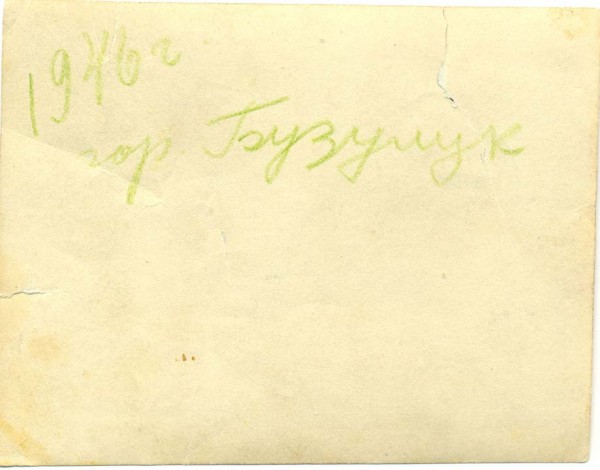 1946 г
гор Бузулук